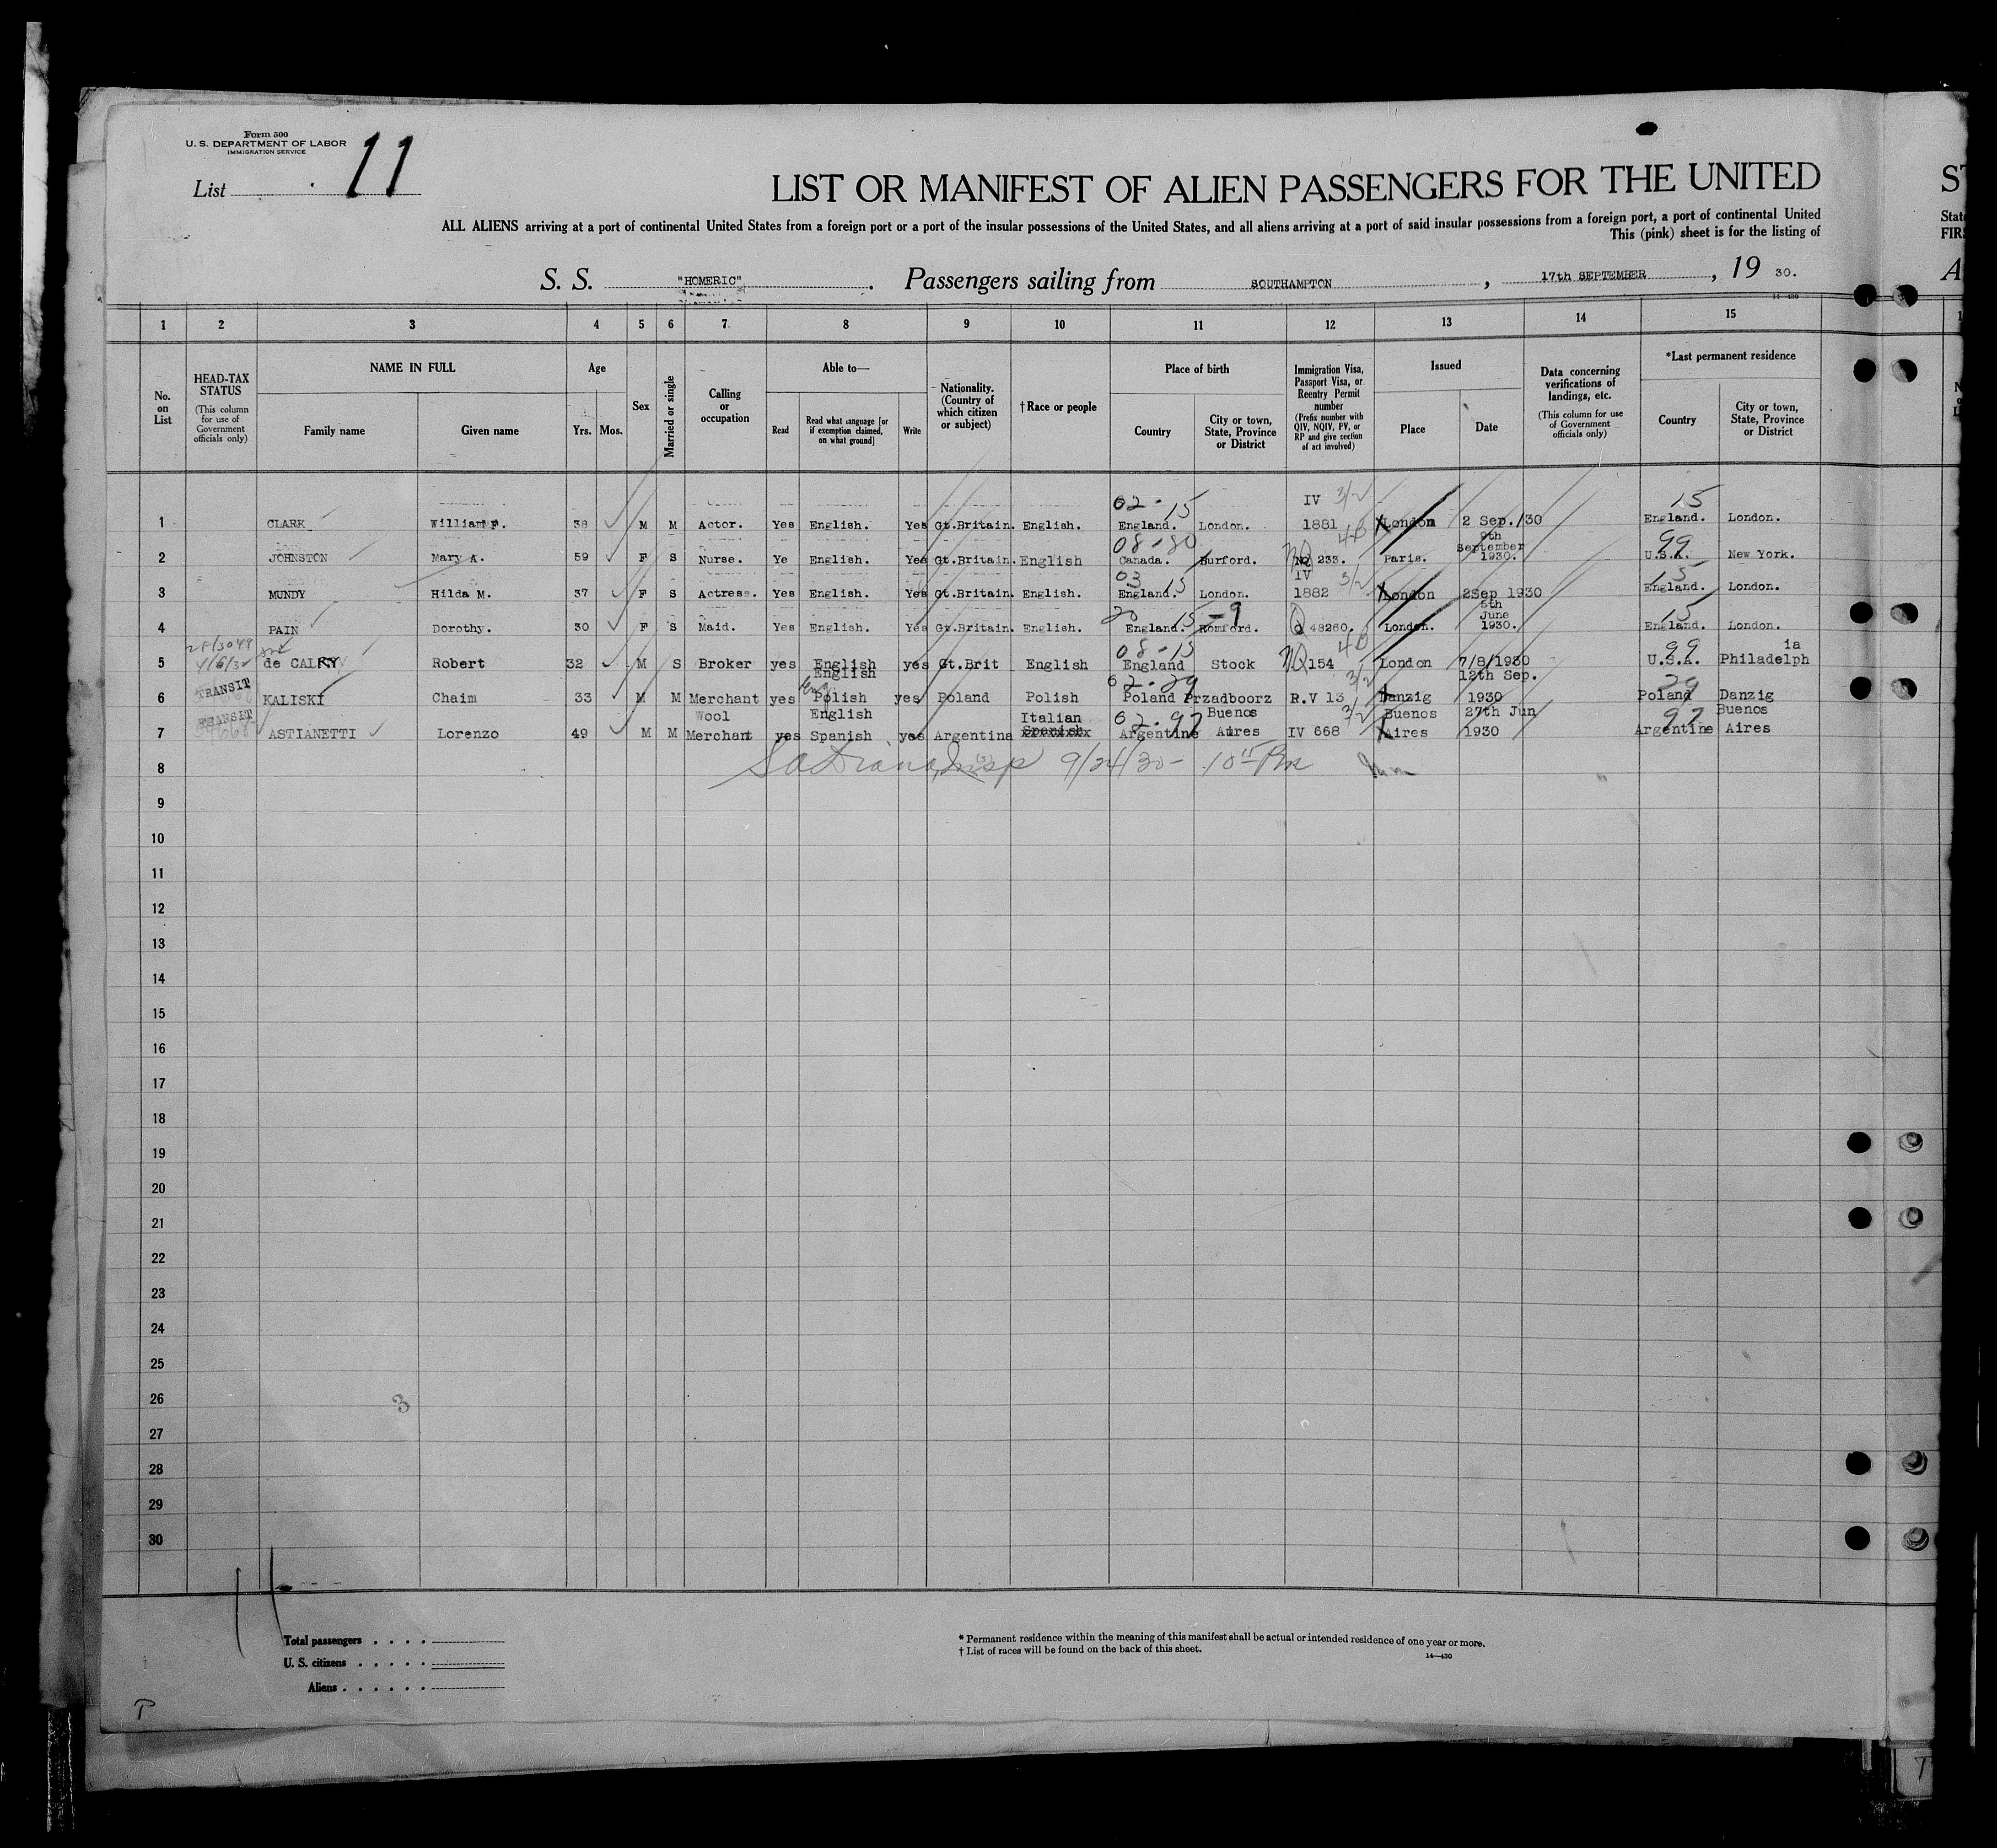 Form 500
U. S. DEPARTMENT OF LABOR
IMMIGRATION SERVICE
List 11
LIST OR MANIFEST OF ALIEN PASSENGERS FOR THE UNITED
ALL ALIENS arriving at a port of continental United States from a foreign port or a port of the insular possessions of the United States, and all aliens arriving at a port of said insular possessions from a foreign port, a port of continental United
This (pink) sheet is for the listing of
S. S. "HOMERIC". Passengers sailing from SOUTHAMPTON, 17th SEPTEMBER, 19 30.
1 2 3 4 5 6 7 8 9 10 11 12 13 14 15
No. on List
HEAD-TAX STATUS (This column for use of Government officials only)
NAME IN FULL
Family name Given name
Age
Yrs. Mos.
Sex
Married or single
Calling or occupation
Able to—
Read
Read what language [or if exemption claimed, on what ground]
Write
Nationality. (Country of which citizen or subject)
† Race or people
Place of birth
Country
City or town, State, Province or District
Immigration Visa, Passport Visa, or Reentry Permit number (Prefix number with QIV, NQIV, PV, or RP and give section of act involved)
Issued
Place Date
Data concerning verifications of landings, etc. (This column for use of Government officials only)
*Last permanent residence
Country
City or town, State, Province or District
02-15 IV 3/2 15
1 CLARK William F. 38 M M Actor. Yes English. Yes Gt.Britain. English. England. London. 1881 London 2 Sep./30 England. London.
08-80 4B 9th September 99
2 JOHNSTON Mary A. 59 F S Nurse. Ye English. Yes Gt.Britain. English Canada. Burford. NQ 233. Paris. 1930. U.S.A. New York.
03 15 IV 3/2 15
3 MUNDY Hilda M. 37 F S Actress. Yes English. Yes Gt.Britain. English. England. London. 1882 London 2Sep 1930 England. London.
20 15-9 June 15
4 PAIN Dorothy. 30 F S Maid. Yes English. Yes Gt.Britain. English. England. Romford. Q 48260. London. 1930. England. London.
08-15 4B 99 ia
5 de CALRY Robert 32 M S Broker yes English yes Gt.Brit English England Stock NQ 154 London 7/8/1930 U.S.A. Philadelph
TRANSIT English 02-29 3/2 12th Sep. 29
6 KALISKI Chaim 33 M M Merchant yes Polish yes Poland Polish Poland Przadboorz R.V 13 Danzig 1930 Poland Danzig
TRANSIT Wool English Italian 02-97 Buenos 3/2 Buenos 27th Jun 97 Buenos
7 ASTIANETTI Lorenzo 49 M M Merchant yes Spanish yes Argentina Spanish Argentine Aires IV 668 Aires 1930 Argentine Aires
8 Insp 9/24/30- 10 15 Pm
9
10
11
12
13
14
15
16
17
18
19
20
21
22
23
24
25
26 3
27
28
29
30
11
Total passengers
U. S. citizens
Aliens
* Permanent residence within the meaning of this manifest shall be actual or intended residence of one year or more.
† List of races will be found on the back of this sheet.
14—430
P